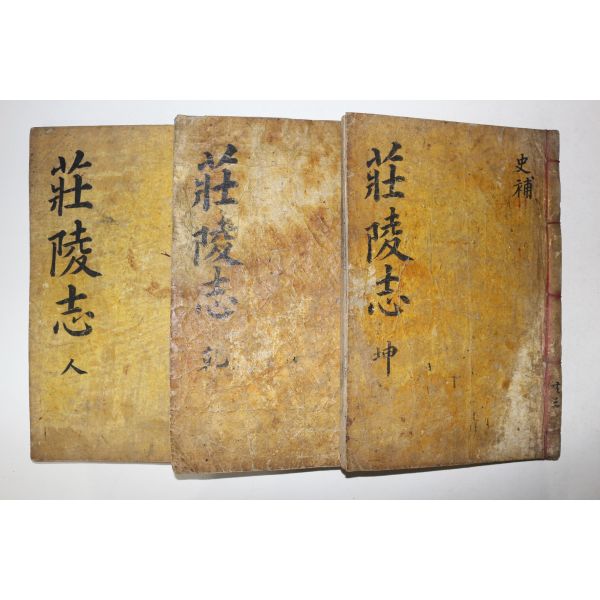 莊陵志
人
莊陵志
乾
莊陵志
坤
史補
共三